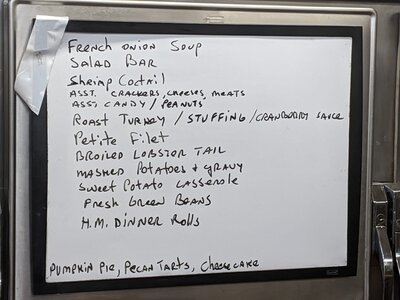 French onion Soup
Salad Bar
Shrimp Coctail
Asst. crackers, cheeses, meats
Asst candy / Peanuts
Roast Turkey / Stuffing / Cranberry sauce
Petite Filet
Broiled Lobster Tail
Mashed Potatoes & gravy
Sweet Potato Casserole
Fresh Green Beans
H.M. Dinner Rolls
Pumpkin Pie, Pecan Tarts, Cheesecake